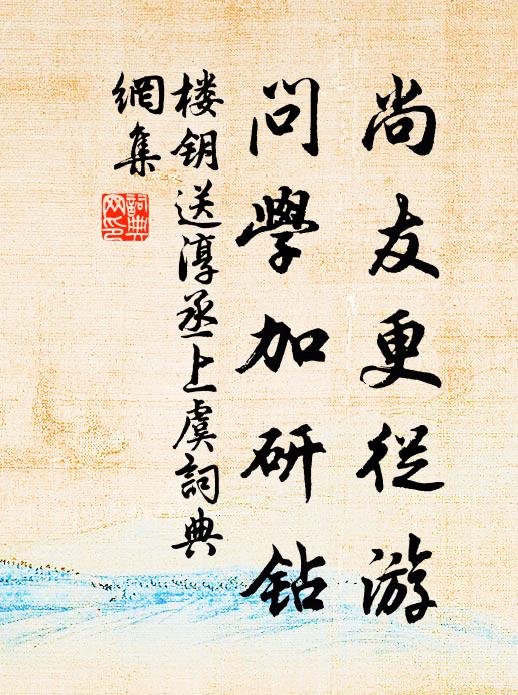 尚友更從游
問學加研鉆
楼钥送淳丞上虞詞典
網集
詞典
网印